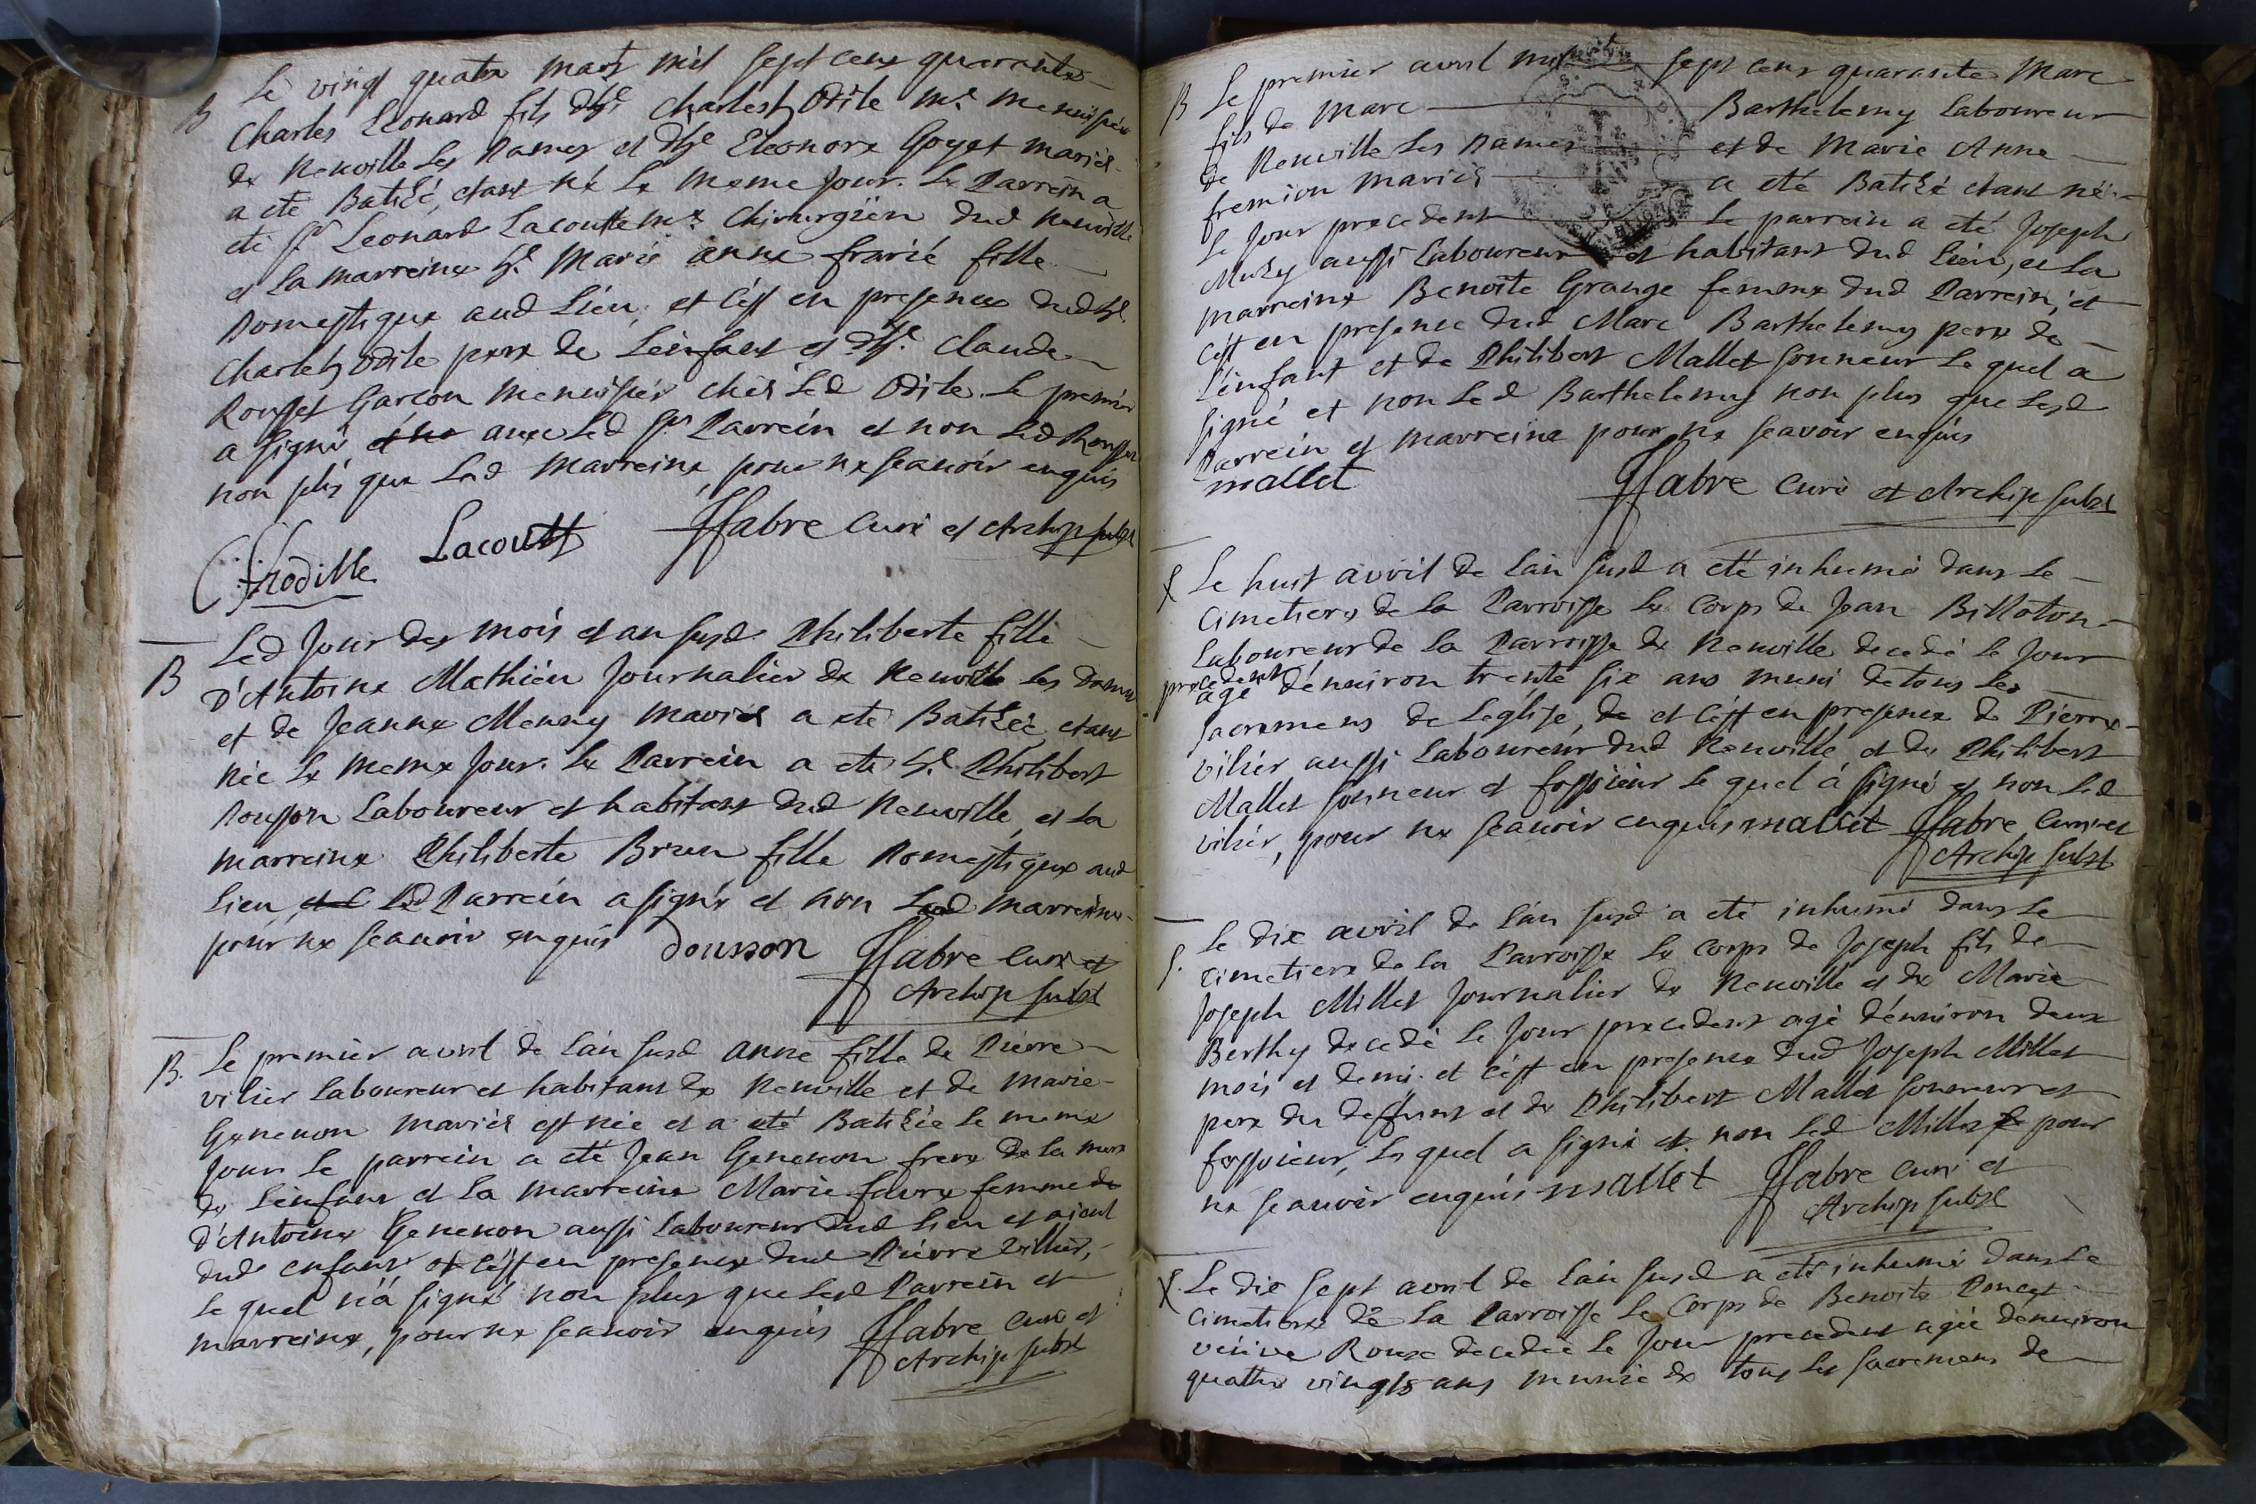 B Le vingt quatre mars mil sept cens quarante
Charles Leonard fils d'h.e Charles Odile m.e menuisier
de Neuville les Dames et d'h.e Eleonore Goyet mariés
a eté Batisé, etant né le meme jour. Le Parrein a
eté s.r Leonard Lacoutte m.e Chirurgien dud Neuville
et la marreine h.e Marie anne frarié fille
Domestique aud Lieu; et c'est en presence dud h.e
Charles Odile pere de l'enfant et d'h.e Claude
Rousset Garcon menuisier chés led Odile. Le premier
a signé, avec led s.r Parrein et non led Rousset
non plus que lad marreine, pour ne sçavoir enquis
Odille Lacoutte ffabre curé et Archip subst
B Led jour des mois et an susd Philiberte fille
d'Antoine Mathieu journalier de Neuville les dames
et de Jeanne Menny mariés a eté Batisée, etant
née le meme jour. Le Parrein a eté h.e Philibert
Dousson Laboureur et habitant dud Neuville, et la
marreine Philiberte Brun fille Domestique aud
Lieu, led Parrein a signé et non lad marreine
pour ne sçavoir enquis dousson ffabre curé et
Archip subst
B. Le premier avril de l'an susd anne fille de Pierre
vilier Laboureur et habitant de Neuville et de Marie
Genenon mariés est née et a eté Batisée le meme
jour. le parrein a eté Jean Genenon frere de la mere
de l'enfant et la marreine Marie favre femme de
d'Antoine Genenon aussi Laboureur dud lieu et aieul
dud enfant et c'est en presence dud Pierre villier,
le quel n'a signé non plus que lesd Parrein et
marreine, pour ne sçavoir enquis ffabre curé et
Archip subst
B Le premier avril mil sept cens quarante Marc
fils de Marc Barthelemy Laboureur
de Neuville les Dames et de Marie Anne
fremion mariés a eté Batisé etant né
le jour precedent le parrein a eté Joseph
Muzy aussi Laboureur et habitant dud Lieu, et la
marreine Benoite Grange femme dud Parrein, et
c'est en presence dud Marc Barthelemy pere de
l'enfant et de Philibert Mallet sonneur le quel a
signé et non led Barthelemy non plus que lesd
Parrein et marreine pour ne sçavoir enquis
mallet ffabre curé et Archip subst
Le huit avril de l'an susd a eté inhumé dans le
cimetiere de la Parroisse le corps de Jean Billoton
Laboureur de la Parroisse de Neuville decedé le jour
precedent
agé d'environ trente six ans muni de tous les
sacremens de Leglise, de et c'est en presence de Pierre
vilier aussi Laboureur dud Neuville et de Philibert
Mallet sonneur et fossoieur le quel a signé et non led
vilier, pour ne sçavoir enquis mallet ffabre curé et
Archip subst
Le dix avril de l'an susd a eté inhumé dans le
cimetiere de la Parroisse le corps de Joseph fils de
Joseph Millet journalier de Neuville et de Marie
Berthy decedé le jour precedent agé d'environ deux
mois et demi. et c'est en presence dud Joseph Millet
pere du deffunt et de Philibert Mallet sonneur et
fossoieur, le quel a signé et non led Millet pour
ne sçavoir enquis mallet ffabre curé et
Archip subst
Le dix sept avril de l'an susd a eté inhumé dans le
cimetiere de la Parroisse le Corps de Benoite Poncet
veuve Roux decedée le jour precedent agée denviron
quatre vingts ans munie de tous les sacremens de